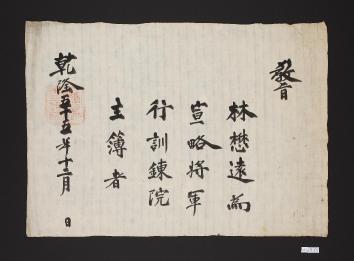 教旨
林懋遠爲
宣略將軍
行訓鍊院
主簿者
乾隆五十五年十二月 日